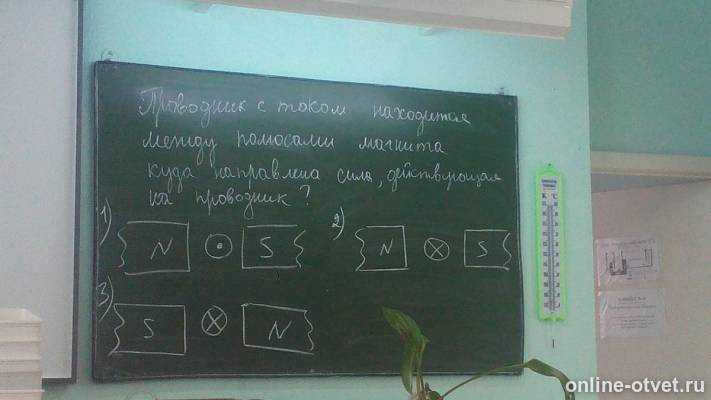 Проводник с током находится
между полюсами магнита
куда направлена сила, действующая
на проводник?
1) N S
2) N S
3) S N
K °C
online-otvet.ru